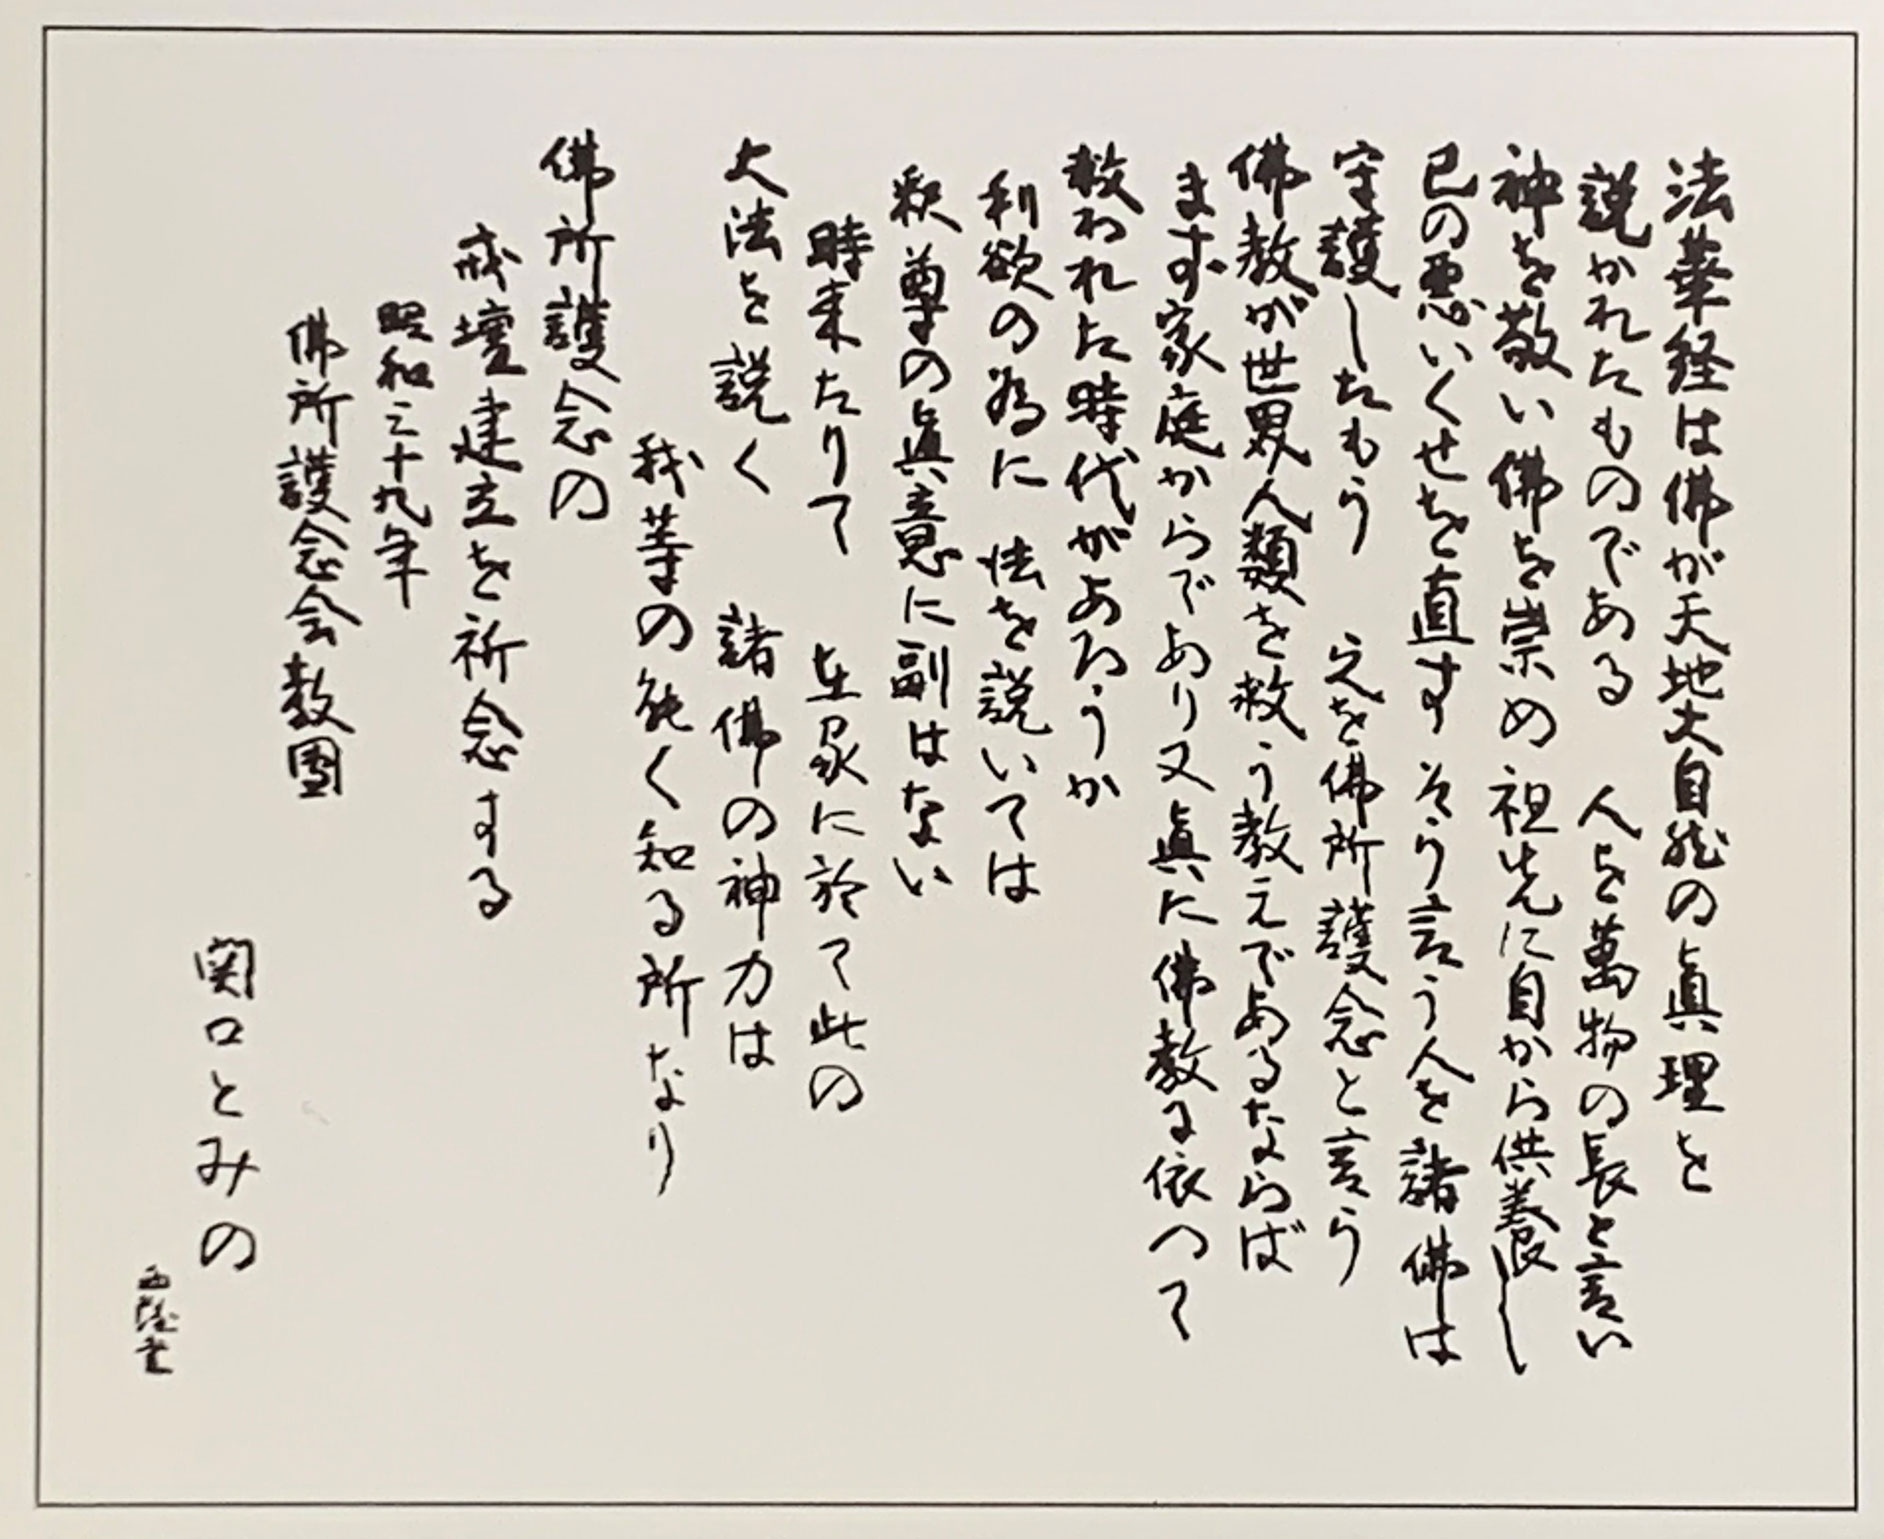 法華経は佛が天地大自然の眞理を
説かれたものである 人を萬物の長と言い
神を敬い佛を崇め祖先に自から供養し
己の悪いくせを直すそう言う人を諸佛は
守護したもう 之を佛所護念と言う
佛教が世界人類を救う教えであるならば
まず家庭からであり又眞に佛教に依って
救われた時代があろうか
利欲の為に 法を説いては
釈尊の眞意に副はない
時来たりて 在家に於て此の
大法を説く 諸佛の神力は
我等の能く知る所なり
佛所護念の
戒壇建立を祈念する
昭和三十九年
佛所護念会教團
関口とみの
書